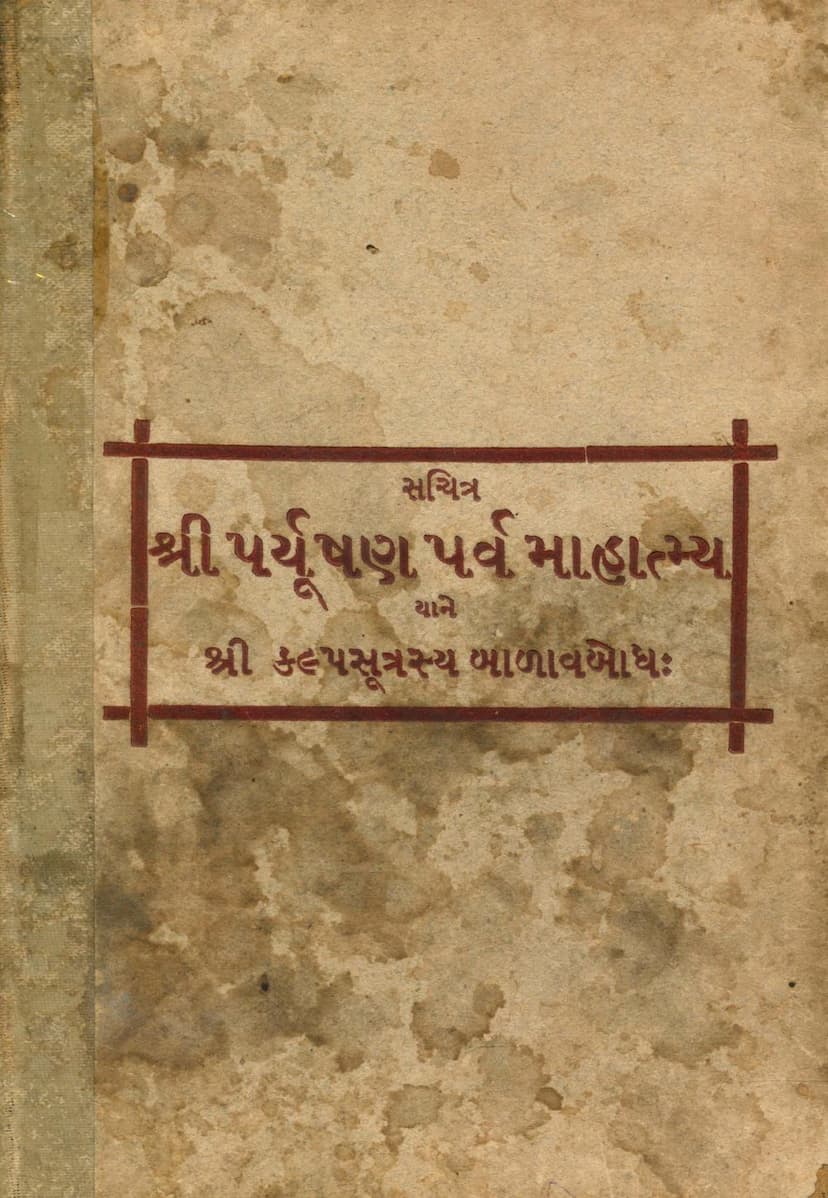 સચિત્ર
શ્રી પર્યૂષણ પર્વ માહાત્મ્ય
યાને
શ્રી કલ્પસૂત્રસ્ય બાળાવબોધઃ